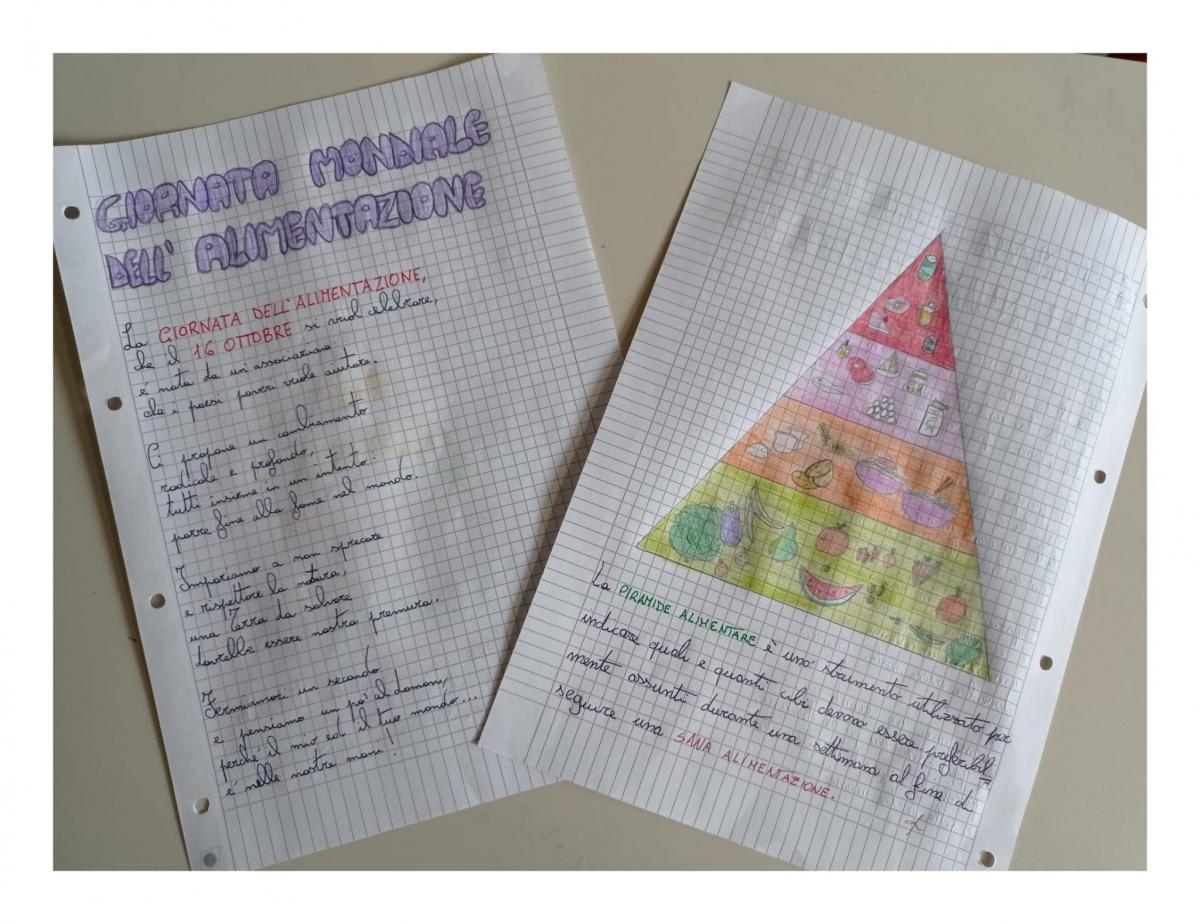 GIORNATA MONDIALE
DELL' ALIMENTAZIONE
La GIORNATA DELL'ALIMENTAZIONE,
che il 16 OTTOBRE si vuol celebrare,
è nata da un'associazione
che i paesi poveri vuole aiutare.
Ci propone un cambiamento
radicale e profondo,
tutti insieme in un intento:
porre fine alla fame nel mondo.
Impariamo a non sprecare
e rispettare la natura,
una Terra da salvare
dovrebbe essere nostra premura.
Fermiamoci un secondo
e pensiamo un po' al domani,
perché il mio ed il tuo mondo...
è nelle nostre mani!
La PIRAMIDE ALIMENTARE è uno strumento utilizzato per
indicare quali e quanti cibi devono essere preferibil=
mente assunti durante una settimana al fine di
seguire una SANA ALIMENTAZIONE.